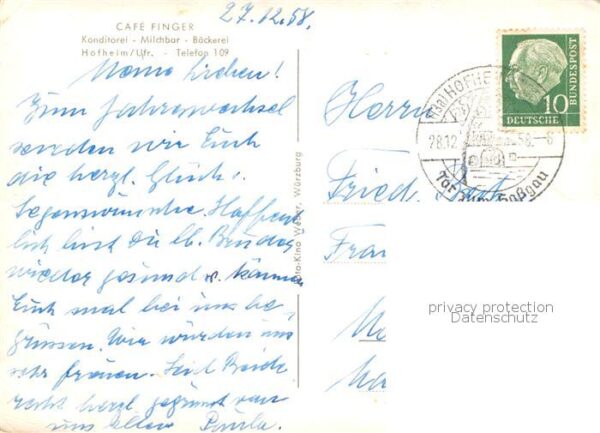 27.12.58.
CAFÉ FINGER
Konditorei - Milchbar - Bäckerei
Hofheim/Ufr. - Telefon 109
Meine Lieben!
Zum Jahreswechsel
senden wir Euch
die herzl. Glück-
Segenswünsche. Hoffent-
lich bist Du lb. Bruder
wieder gesund u. können
Euch mal bei uns be-
grüssen. Wir würden uns
sehr freuen. Seid Beide
recht herzl. gegrüsst von
uns allen Paula.
Foto-Kino Würzburg
Herrn
Fried
DEUTSCHE
BUNDESPOST
10
HOFHEIM
28.12
58.-6
Tor zum Haßgau
privacy protection
Datenschutz